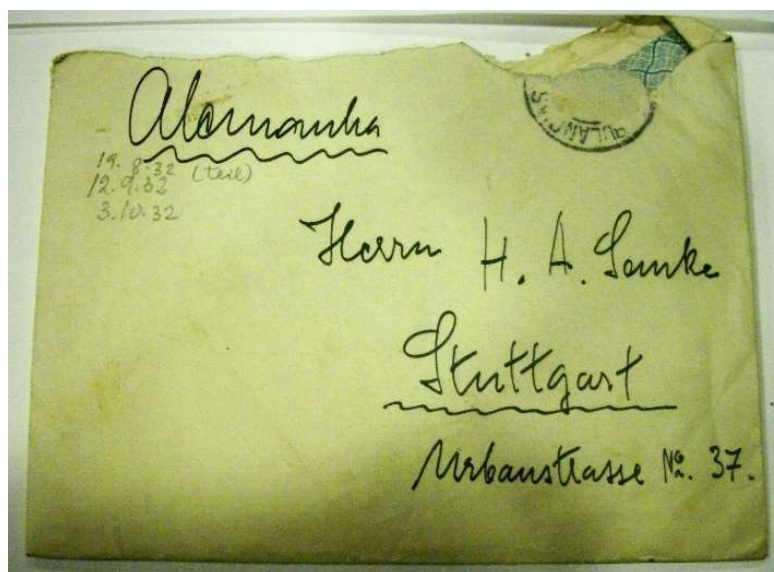 Alemanha
19.8.32 (teil)
12.9.32
3.10.32
Herrn H. A. Lemke
Stuttgart
Urbanstrasse No. 37.